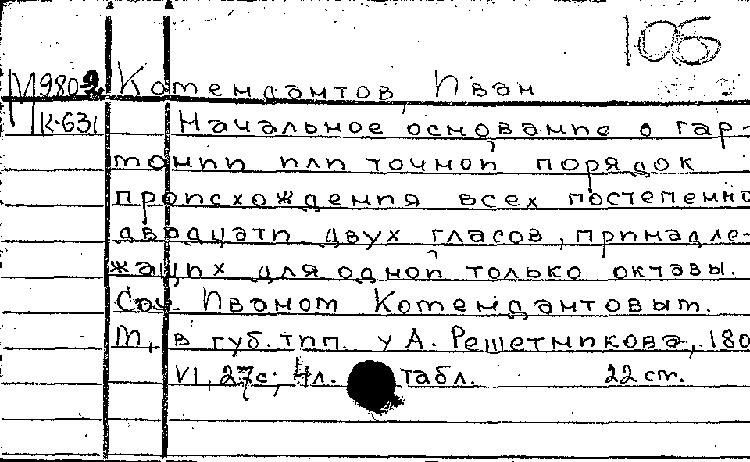 105
М980-9 Комендантов, Иван
К-631 Начальное основание о гар-
монии или точной порядок
происхождения всех постепенно
двадцати двух гласов, принадле-
жащих для одной только октавы.
Соч. Иваном Комендантовым.
М., в губ. тип. у А. Решетникова, 180
VI, 27с; 4л. табл. 22 см.